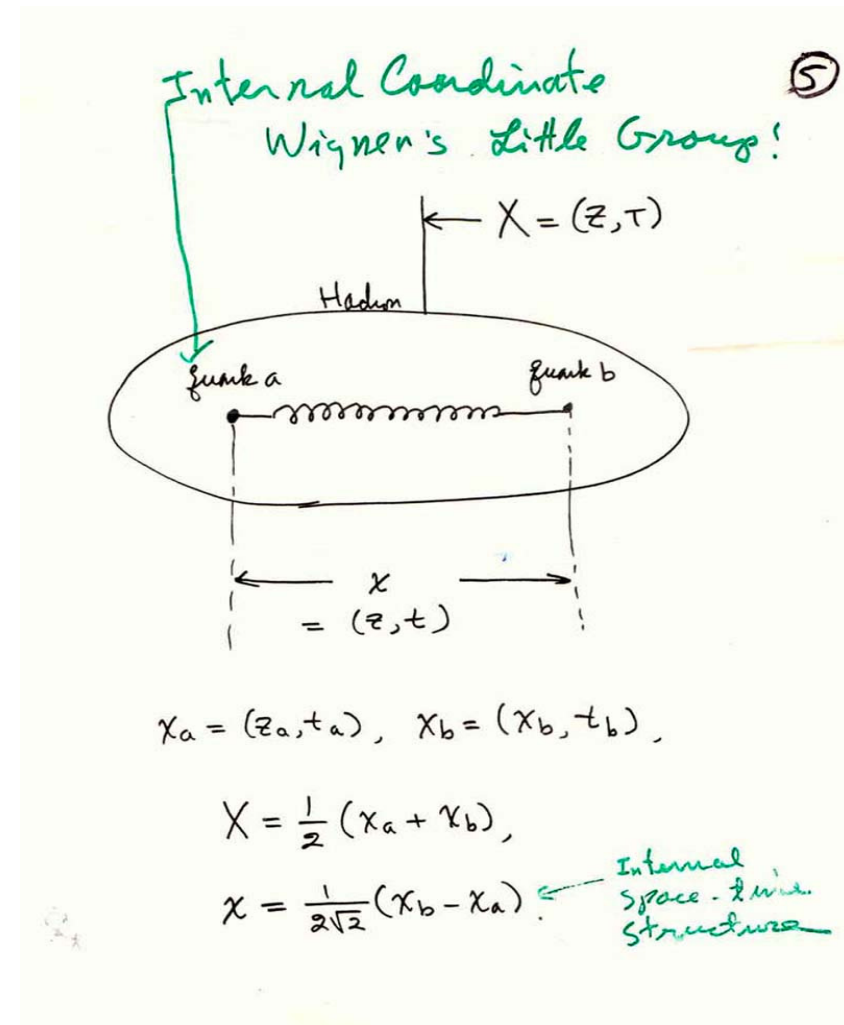 Internal Coordinate
⑤
Wigner's Little Group!
← X = (Z,T)
Hadron
quark a
quark b
x
= (z,t)
xa = (za,ta), xb = (xb,tb),
X = 1/2 (xa + xb),
x = 1/(2√2) (xb - xa).
Internal
space-time
structure